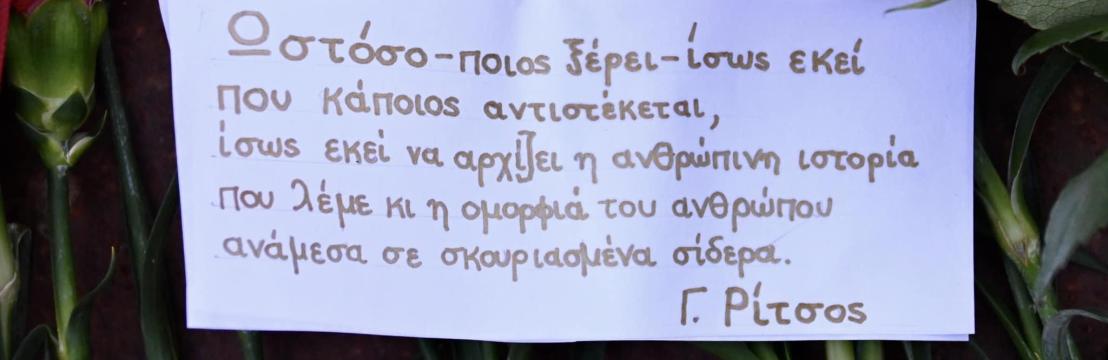 Ο στόσο-ποιος ξέρει-ίσως εκεί
που κάποιος αντιστέκεται,
ίσως εκεί να αρχίζει η ανθρώπινη ιστορία
που λέμε κι η ομορφιά του ανθρώπου
ανάμεσα σε σκουριασμένα σίδερα.
Γ. Ρίτσος